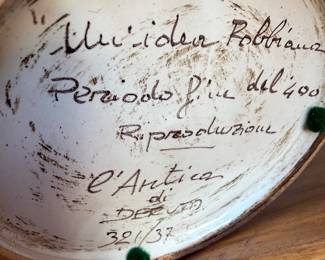 Un'idea Robbiana
Periodo fine del '400
Riproduzione
l'Antica
di
DERUTA
321/37